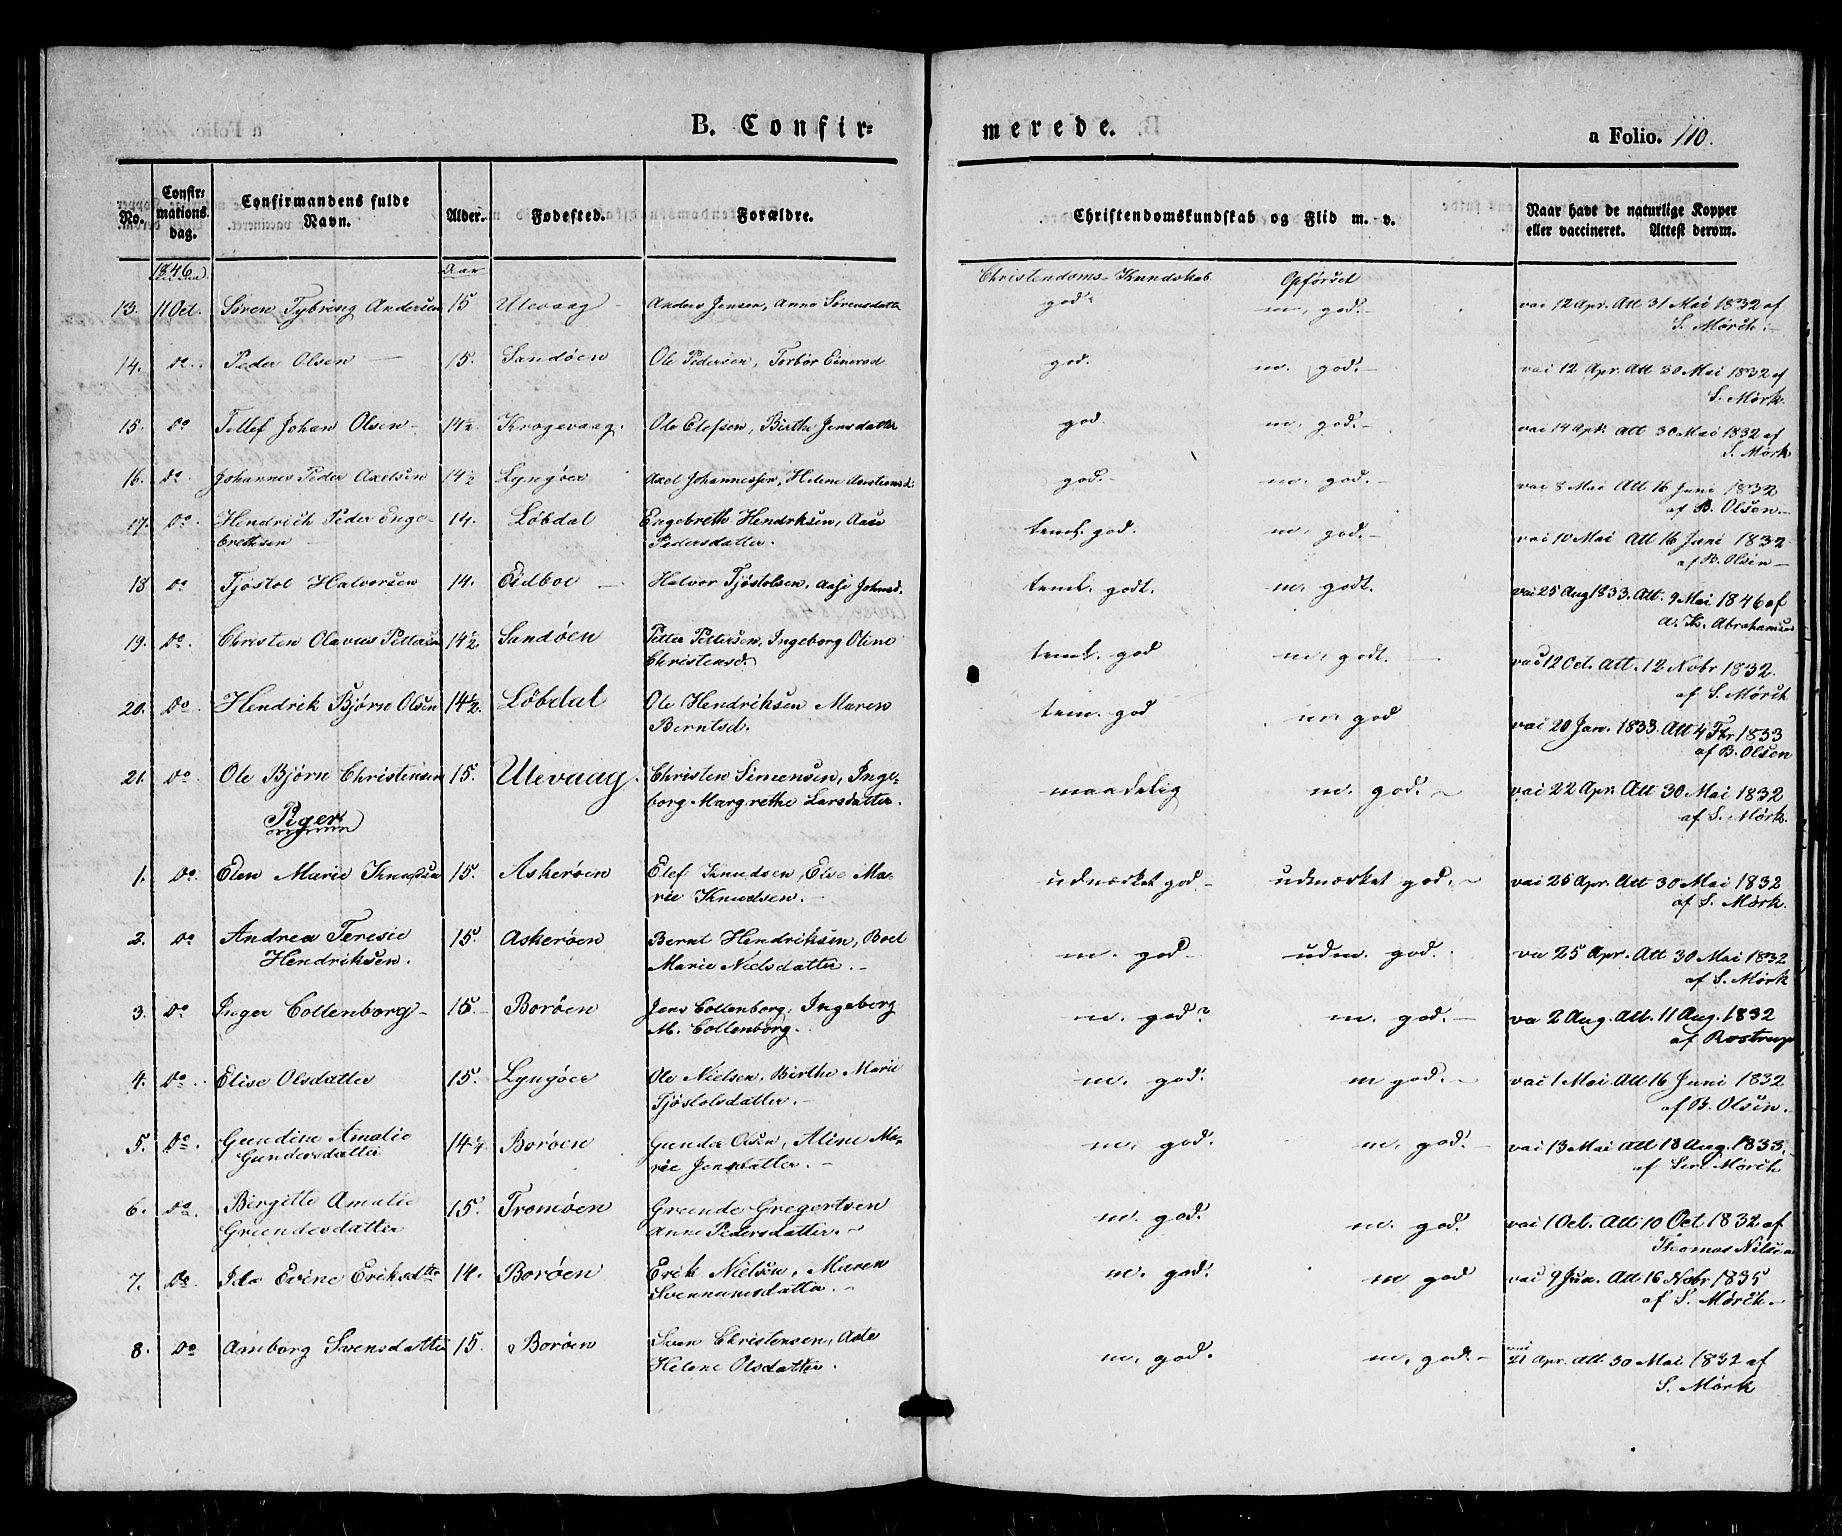 B. Confirmerede.
a Folio. 110.
No. Confirmations dag. Confirmandens fulde Navn. Alder. Fødested. Forældre. Christendomskundskab og Flid m. v. Naar havt de naturlige Kopper eller vaccineret. Attest derom.
1846 Aar Christendoms-Kundskab Opførsel
13. 11 Oct. Søren Tybring Andersen 15 Ulevaag Anders Jensen, Anne Sørensdatter god m. god. vac 12 Apr. Att 31 Mai 1832 af
S. Mørch.
14. do Peder Olsen 15. Sandøen Ole Pedersen, Torbør Einersd god. m. god. vac 12 Apr. Att 30 Mai 1832 af
S. Mørk.
15. do Tellef Johan Olsen 14½ Krogevaag. Ole Elefsen, Birthe Jensdatter god m. god. vac 14 Apr. Att 30 Mai 1832 af
S. Mørk
16. do Johannes Peder Axelsen 14½ Lyngøer Axel Johannessen, Helene god. m. god. vac 8 Mai Att 16 Juni 1832
af B. Olsen.
17. do Hendrich Peder Enge- 14. Løbdal Engebreth Hendriksen, Aase teml. god. m. god. vac 10 Mai Att 16 Juni 1832
brethsen Pedersdatter. af B. Olsen
18 do Tjøstol Halvorsen 14. Eidboe Halvor Tjøstolsen, Aase Johnsd. teml. godt. m. godt. vac 25 Aug 1833. Att. 9 Mai 1846 af
A. K. Abrahamsen
19. do Christen Olavus Pettersen 14½ Sandøen Petter Pettersen, Ingeborg Oline teml. god m. godt. vac 12 Oct. Att. 12 Nobr 1832.
Christensd. af S. Mørch
20. do Hendrik Bjørn Olsen 14½. Løbdal Ole Hendriksen Maren tem. god m. god vac 20 Jan. 1833. Att 4 Fbr 1833
Berntsd. af B. Olsen
21. do Ole Bjørn Christensen 15. Ulevaag. Christen Simensen, Inge- maadelig m. god. vac 22 Apr. Att 30 Mai 1832
borg Margrethe Larsdatter. af S. Mørk.
Piger
1. do. Elen Marie Knudsen 15. Askerøen Elef Knudsen, Else Ma- udmærket god udmærket god. vac 25 Apr. Att 30 Mai 1832
rie Knudsen. af S. Mørk.
2. do Andrea Teresie 15. Askerøen Bernt Hendriksen, Boel m. god udm. god. va 25 Apr. Att 30 Mai 1832
Hendriksen. Marie Nielsdatter. af S. Mørk
3. do Inger Collenborg 15. Borøen Jens Collenborg, Ingeberg m. god. m. god. va 2 Aug. Att. 11 Aug. 1832
M. Collenborg. af Rostrup
4. do. Elise Olsdatter 15. Lyngøer Ole Nielsen, Birthe Marie m. god. m god. vac 1 Mai Att 16 Juni 1832
Tjøstolsdatter. af B. Olsen.
5. do. Gundine Amalie 14½ Borøen Gunder Olsen, Aline Ma- m. god. m. god. vac 13 Mai Att 18 Aug. 1833.
Gundersdatter rie Jensdatter. af Sør. Mørch
6. do. Birgitte Amalie 15. Tromøen Grunde Gregertsen m. god. m. god. vac 1 Oct. Att 10 Oct 1832. af
Gruendesdatter Anne Pedersdatter. Thomas Nilsen
7. do. Ida Evine Eriksdtter 14. Borøen Erik Nielsen, Maren m. god. m god vac 9 Jun. Att 16 Nobr 1835
Svennumsdatter. af S. Mørch.
8. do Amborg Svensdatter 15. Borøen Sven Christensen, Aste m. god. m. god. vac 21 Apr. Att 30 Mai 1832 af
Helene Olsdatter. S. Mørk